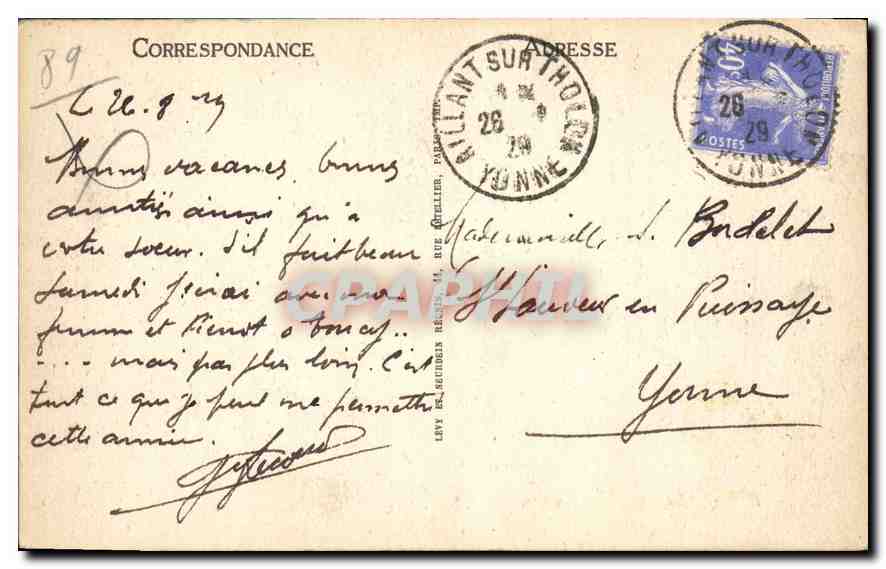 89
CORRESPONDANCE
ADRESSE
26.8.29
Bonnes vacances, bonnes
amitiés ainsi qu'à
votre soeur. S'il fait beau
samedi j'irai avec ma
femme et Pierrot à
.... mais pas plus loin. C'est
tout ce que je peux me permettre
cette année.
LEVY ET NEURDEIN RÉUNIS, 44, RUE LETELLIER, PARIS
AILLANT SUR THOLON
26
29
YONNE
AILLANT SUR THOLON
26
29
YONNE
40c
POSTES
Mademoiselle S. Bodelet
St Sauveur en Puisaye
Yonne
CPAPHIL